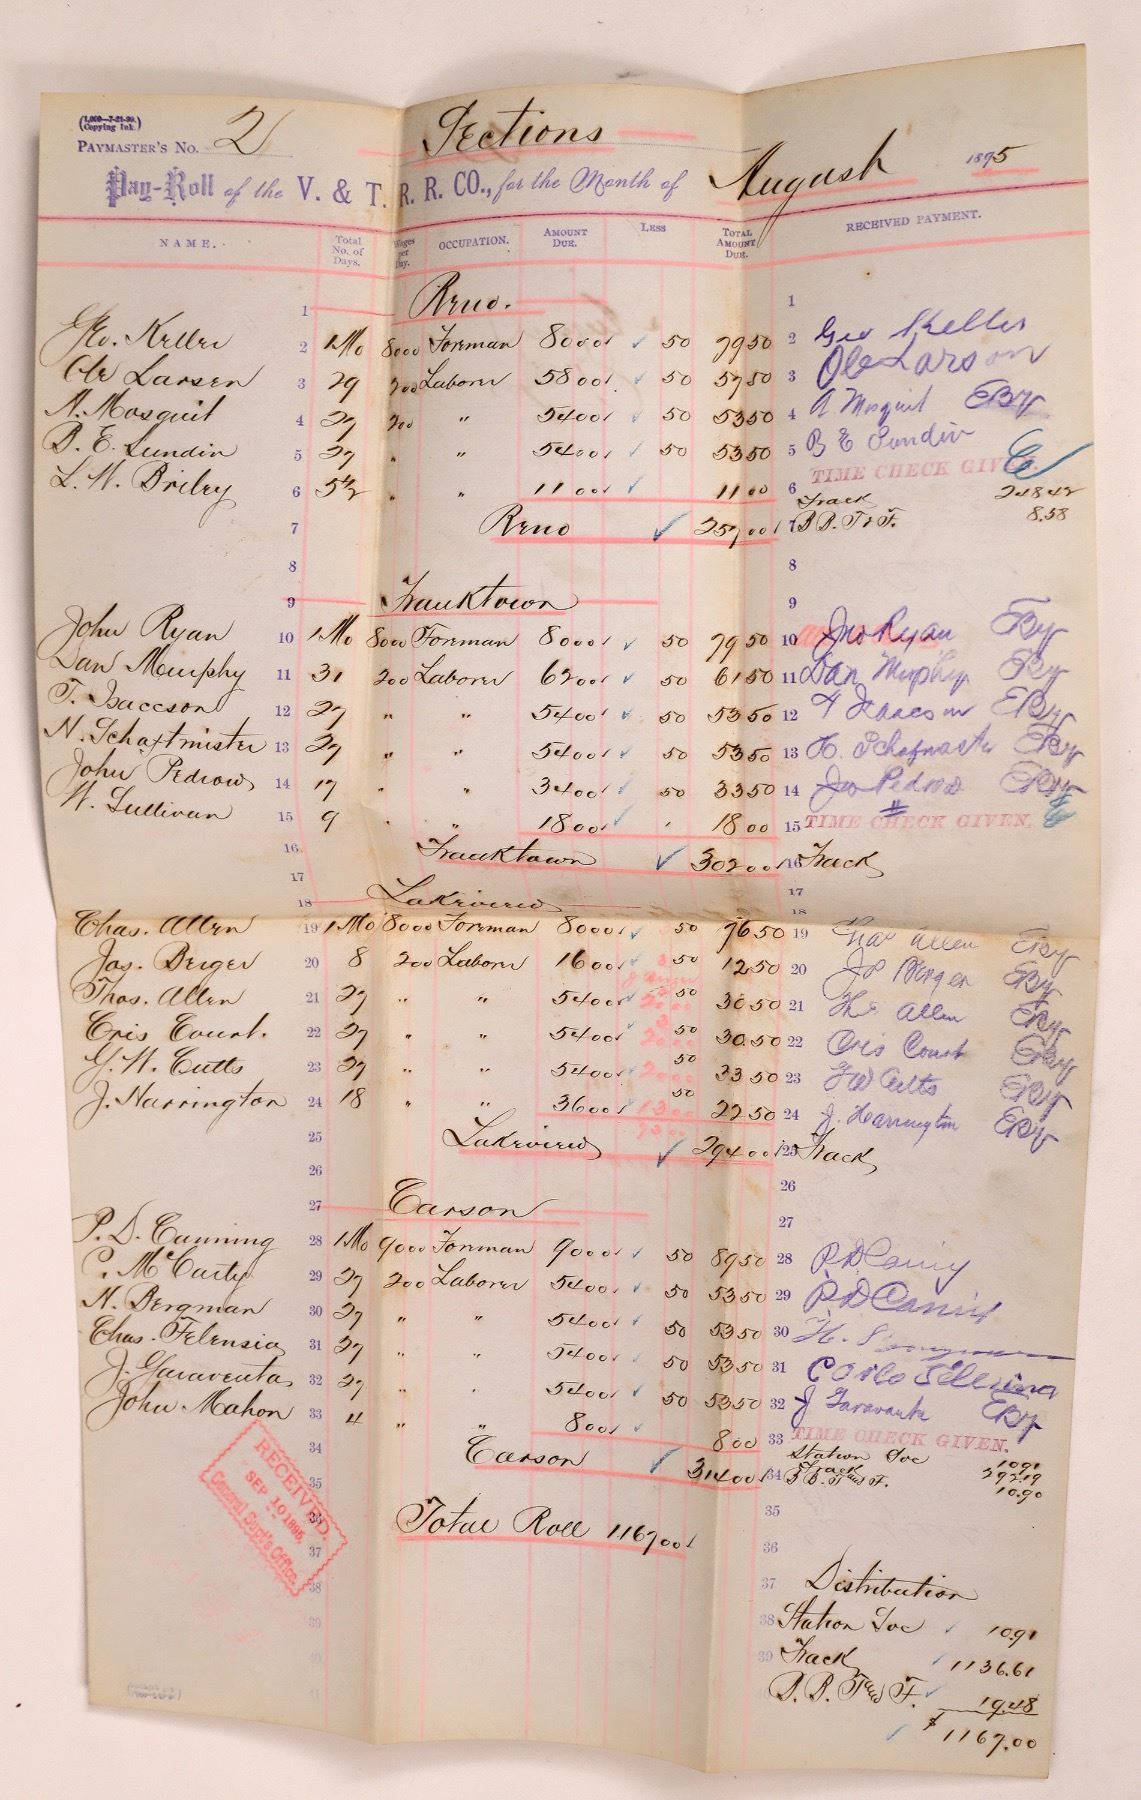 (1,000—7-21-90. Copying Ink.)
PAYMASTER'S No. 2 Sections
Pay-Roll of the V. & T. R. R. CO., for the Month of August 1895
NAME. Total No. of Days. Wages per Day. OCCUPATION. AMOUNT DUE. LESS TOTAL AMOUNT DUE. RECEIVED PAYMENT.
1 Reno. 1
Geo. Keller 2 1 Mo 80 00 Foreman 80 00 50 79 50 2 Geo Keller
Ole Larsen 3 29 2 00 Laborer 58 00 50 57 50 3 Ole Larson
A. Mosquit 4 27 2 00 " 54 00 50 53 50 4 A. Mosquit EBY
B. E. Lundin 5 27 " " 54 00 50 53 50 5 B E Lundin
L. W. Briley 6 5 1/2 " " 11 00 11 00 6 TIME CHECK GIVEN.
Track 248 42
7 Reno 257 00 7 B. B. T & F. 8.58
8 8
9 Franktown 9
John Ryan 10 1 Mo 80 00 Foreman 80 00 50 79 50 10 Jno Ryan EBy
Dan Murphy 11 31 2 00 Laborer 62 00 50 61 50 11 Dan Murphy EBy
T. Isaccson 12 27 " " 54 00 50 53 50 12 T Isaacson EBy
N. Schaftmister 13 27 " " 54 00 50 53 50 13 N. Schafmaster EBy
John Pedrow 14 17 " " 34 00 50 33 50 14 Jno Pedrow EBy
W. Sullivan 15 9 " " 18 00 " 18 00 15 TIME CHECK GIVEN.
16 Franktown 302 00 16 Track
17 17
18 Lakeview 18
Chas. Allen 19 1 Mo 80 00 Foreman 80 00 50 76 50 19 Chas Allen EBy
Jas. Berger 20 8 2 00 Laborer 16 00 50 12 50 20 Js Berger EBy
Thos. Allen 21 27 " " 54 00 20 00 50 30 50 21 Th. Allen EBy
Cris Court. 22 27 " " 54 00 20 00 50 30.50 22 Cris Court EBy
G. W. Cutts 23 27 " " 54 00 20 00 50 33 50 23 G W Cutts EBy
J. Harrington 24 18 " " 36 00 13 00 50 22 50 24 J. Harrington EBy
25 Lakeview 294 00 25 Track
26 26
27 Carson 27
P. D. Canning 28 1 Mo 90 00 Foreman 90 00 50 89 50 28 P. D. Caning
C. McCarty 29 27 2 00 Laborer 54 00 50 53 50 29 P. D Caning
N. Bergman 30 27 " " 54 00 50 53 50 30
Chas. Felensia 31 27 " " 54 00 50 53 50 31
J. Garaventa 32 27 " " 54 00 50 53 50 32 J Garavanta EBy
John Mahon 33 4 " " 8 00 8 00 33 TIME CHECK GIVEN.
Station Svc 10 91
Track 292.19
34 Carson 314 00 34 B B. T and F. 10.90
35 35
RECEIVED. SEP 10 1895. General Supt's Office.
36 Total Roll 1167 00 36
37 37 Distribution
38 38 Station Svc 10.91
39 39 Track 1136.61
40 40 B. B. T and F. 19.48
41 $1167.00